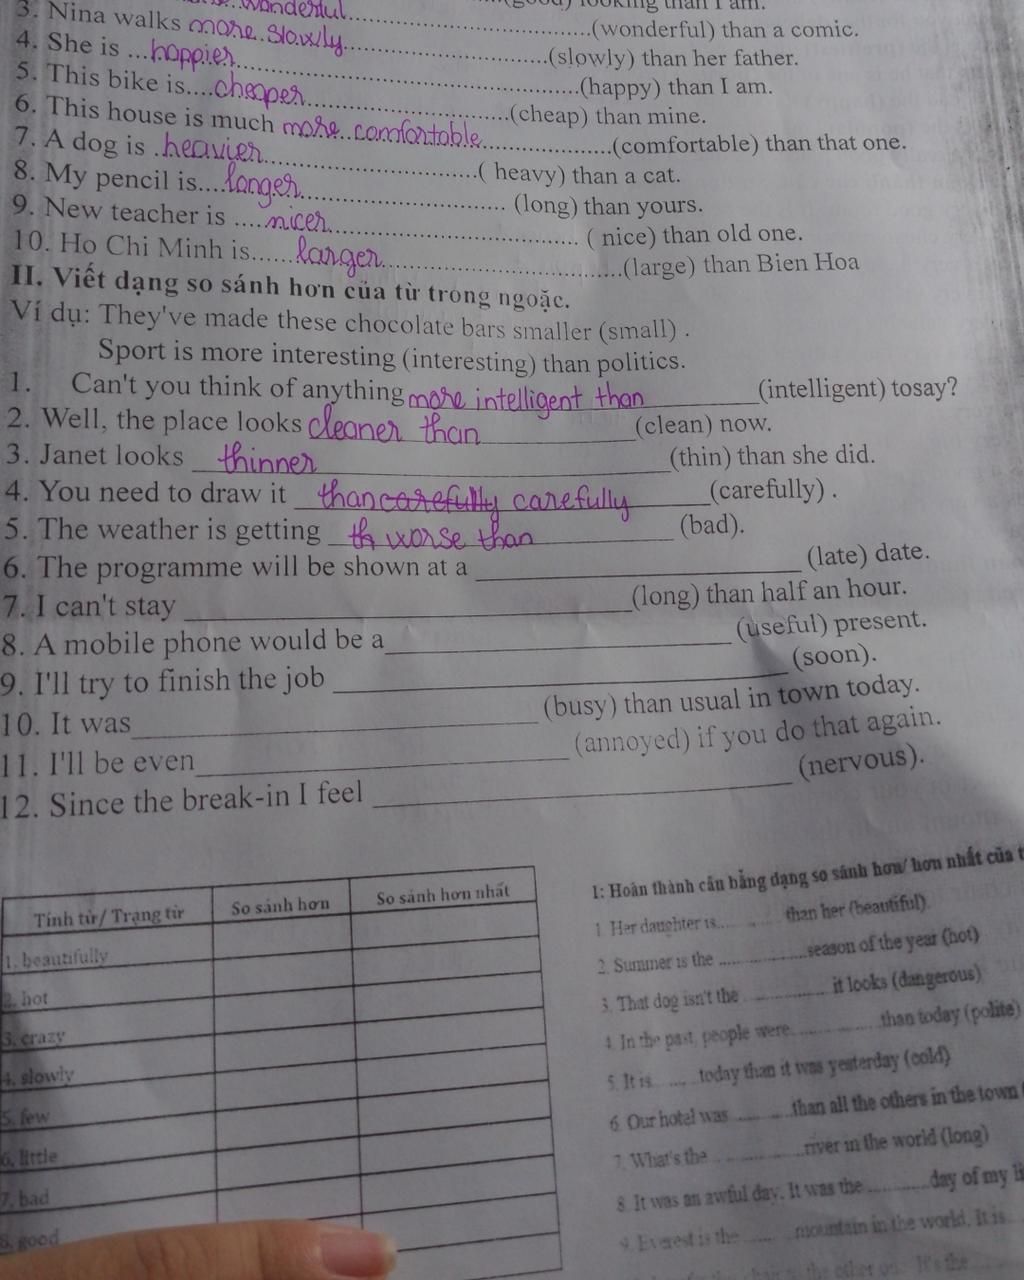 wonderful (good) looking than I am.
3. Nina walks more slowly (wonderful) than a comic.
4. She is happier (slowly) than her father.
5. This bike is cheaper (happy) than I am.
6. This house is much more comfortable (cheap) than mine.
7. A dog is heavier (comfortable) than that one.
8. My pencil is longer ( heavy) than a cat.
9. New teacher is nicer (long) than yours.
10. Ho Chi Minh is larger ( nice) than old one.
(large) than Bien Hoa
II. Viết dạng so sánh hơn của từ trong ngoặc.
Ví dụ: They've made these chocolate bars smaller (small) .
Sport is more interesting (interesting) than politics.
1. Can't you think of anything more intelligent than (intelligent) tosay?
2. Well, the place looks cleaner than (clean) now.
3. Janet looks thinner (thin) than she did.
4. You need to draw it than carefully carefully (carefully) .
5. The weather is getting th worse than (bad).
6. The programme will be shown at a (late) date.
7. I can't stay (long) than half an hour.
8. A mobile phone would be a (useful) present.
9. I'll try to finish the job (soon).
10. It was (busy) than usual in town today.
11. I'll be even (annoyed) if you do that again.
12. Since the break-in I feel (nervous).
Tính từ/ Trạng từ So sánh hơn So sánh hơn nhất
1. beautifully
2. hot
3. crazy
4. slowly
5. few
6. little
7. bad
8. good
1: Hoàn thành câu bằng dạng so sánh hơn/ hơn nhất của
1. Her daughter is...... than her (beautiful).
2. Summer is the ...... season of the year (hot)
3. That dog isn't the ...... it looks (dangerous)
4. In the past, people were...... than today (polite)
5. It is ...... today than it was yesterday (cold)
6. Our hotel was ...... than all the others in the town
7. What's the ...... river in the world (long)
8. It was an awful day. It was the ...... day of my
9. Everest is the ...... mountain in the world. It is
the other It's the